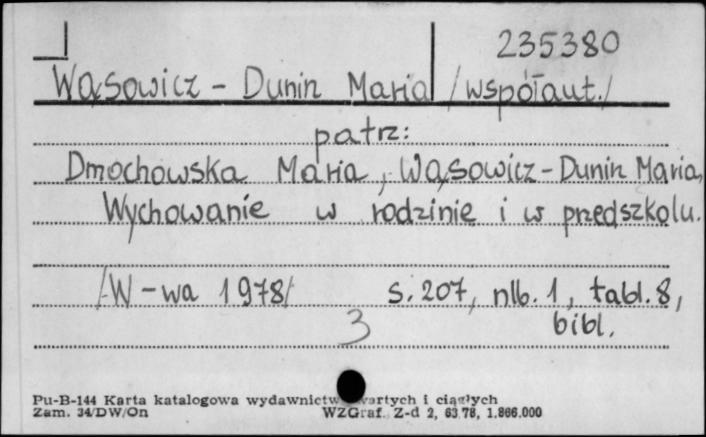 235380
Wąsowicz - Dunin Maria /współaut./
patrz:
Dmochowska Maria, Wąsowicz - Dunin Maria,
Wychowanie w rodzinie i w przedszkolu.
/W-wa 1978/ s. 207, nlb. 1, tabl. 8,
bibl.
3
Pu-B-144 Karta katalogowa wydawnictw i ciągłych
Zam. 34/DW/On WZGraf. Z-d 2, 63 78, 1.866.000